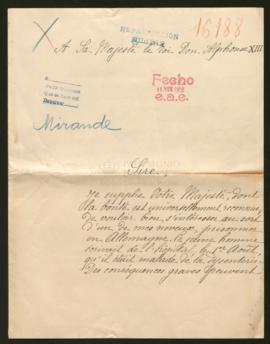 16188
A Sa Majesté le Roi Don Alphonse XIII
Fecho
e.a.e.
Mirande
Sire,
Je supplie Votre Majesté, dont
la bonté est universellement reconnue,
de vouloir bien s'intéresser au sort
d'un de mes neveux, prisonnier
en Allemagne. Ce jeune homme
écrivait de l'hôpital, le 1er Août,
qu'il était malade de la dysenterie.
Des conséquences graves peuvent